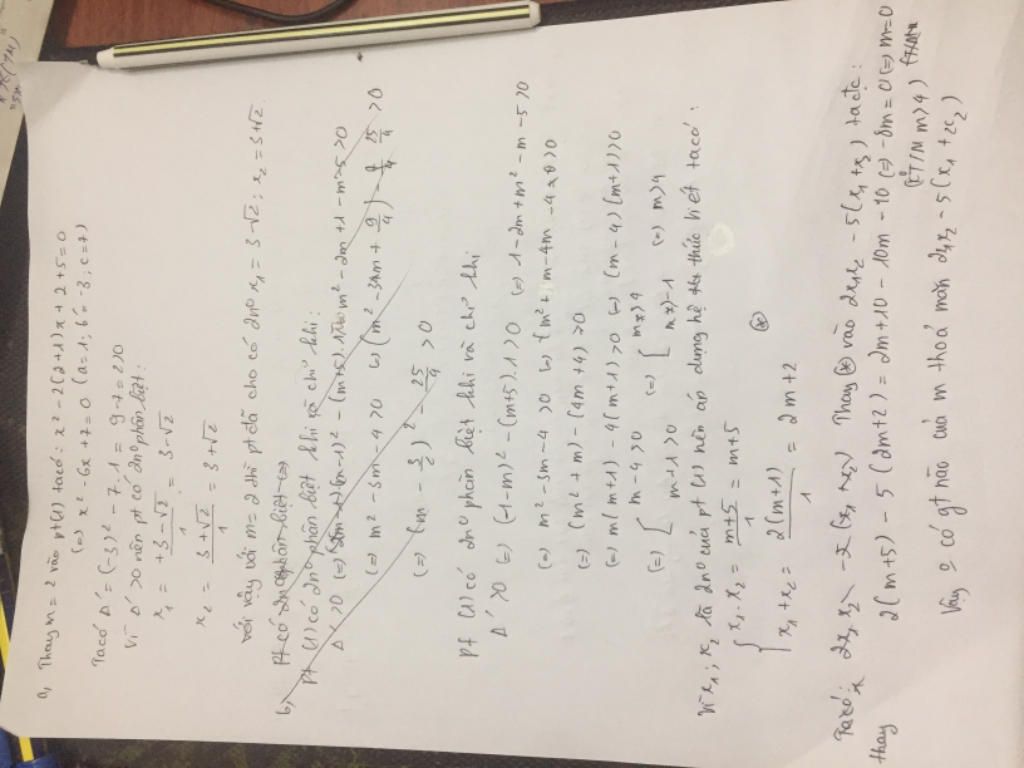 a, Thay m = 2 vào pt(1) ta có: x² - 2(2+1)x + 2 + 5 = 0
(=) x² - 6x + 7 = 0 (a = 1; b' = -3; c = 7)
Ta có Δ' = (-3)² - 7.1 = 9 - 7 = 2 > 0
Vì Δ' > 0 nên pt có 2 n⁰ phân biệt:
x₁ = +3-√2 / 1 = 3-√2
x₂ = 3+√2 / 1 = 3+√2
với vậy với m = 2 thì pt đã cho có 2 n⁰ x₁ = 3-√2; x₂ = 3+√2.
b, Pt có 2 n⁰ phân biệt (=)
Pt (1) có 2 n⁰ phân biệt khi và chỉ khi:
Δ' > 0 (=) (m-1)² - (m+5).1 > 0 m² - 2m + 1 - m - 5 > 0
(=) m² - 3m - 4 > 0 (=) (m² - 3m + 9/4) - 9/4 - 25/4 > 0
(=) (m - 3/2)² - 25/4 > 0
Pt (1) có 2 n⁰ phân biệt khi và chỉ khi
Δ' > 0 (=) (1-m)² - (m+5).1 > 0 (=) 1 - 2m + m² - m - 5 > 0
(=) m² - 3m - 4 > 0 (=) (m² + m - 4m - 4 > 0
(=) (m² + m) - (4m + 4) > 0
(=) m(m+1) - 4(m+1) > 0 (=) (m-4)(m+1) > 0
(=) [ m - 4 > 0 (=) [ m > 4 (=) m > 4
m + 1 > 0 m > -1
Vì x₁; x₂ là 2 n⁰ của pt (1) nên áp dụng hệ thức hi ét ta có:
{ x₁ . x₂ = m+5 / 1 = m+5
x₁ + x₂ = 2(m+1) / 1 = 2m + 2 (*)
Ta có: 2x₁ x₂ - 5(x₁ + x₂) Thay (*) vào 2x₁x₂ - 5(x₁ + x₂) ta đc:
thay 2(m+5) - 5(2m+2) = 2m + 10 - 10m - 10 (=) -8m = 0 (=) m = 0
(KT/M m > 4)
Vậy 0 có gt nào của m thoả mãn 2x₁x₂ - 5(x₁ + x₂)